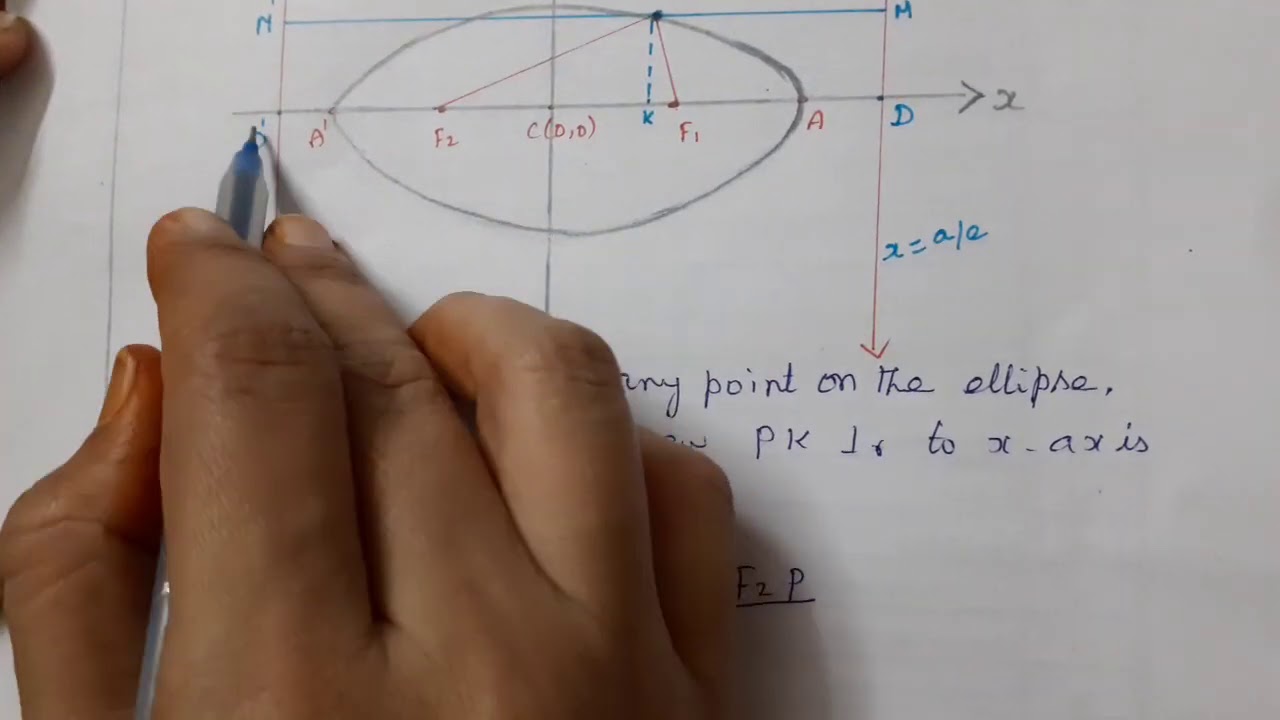 N M
A' F2 C(0,0) K F1 A D x
x = a/e
any point on the ellipse.
PK ⊥r to x-axis
F2 P